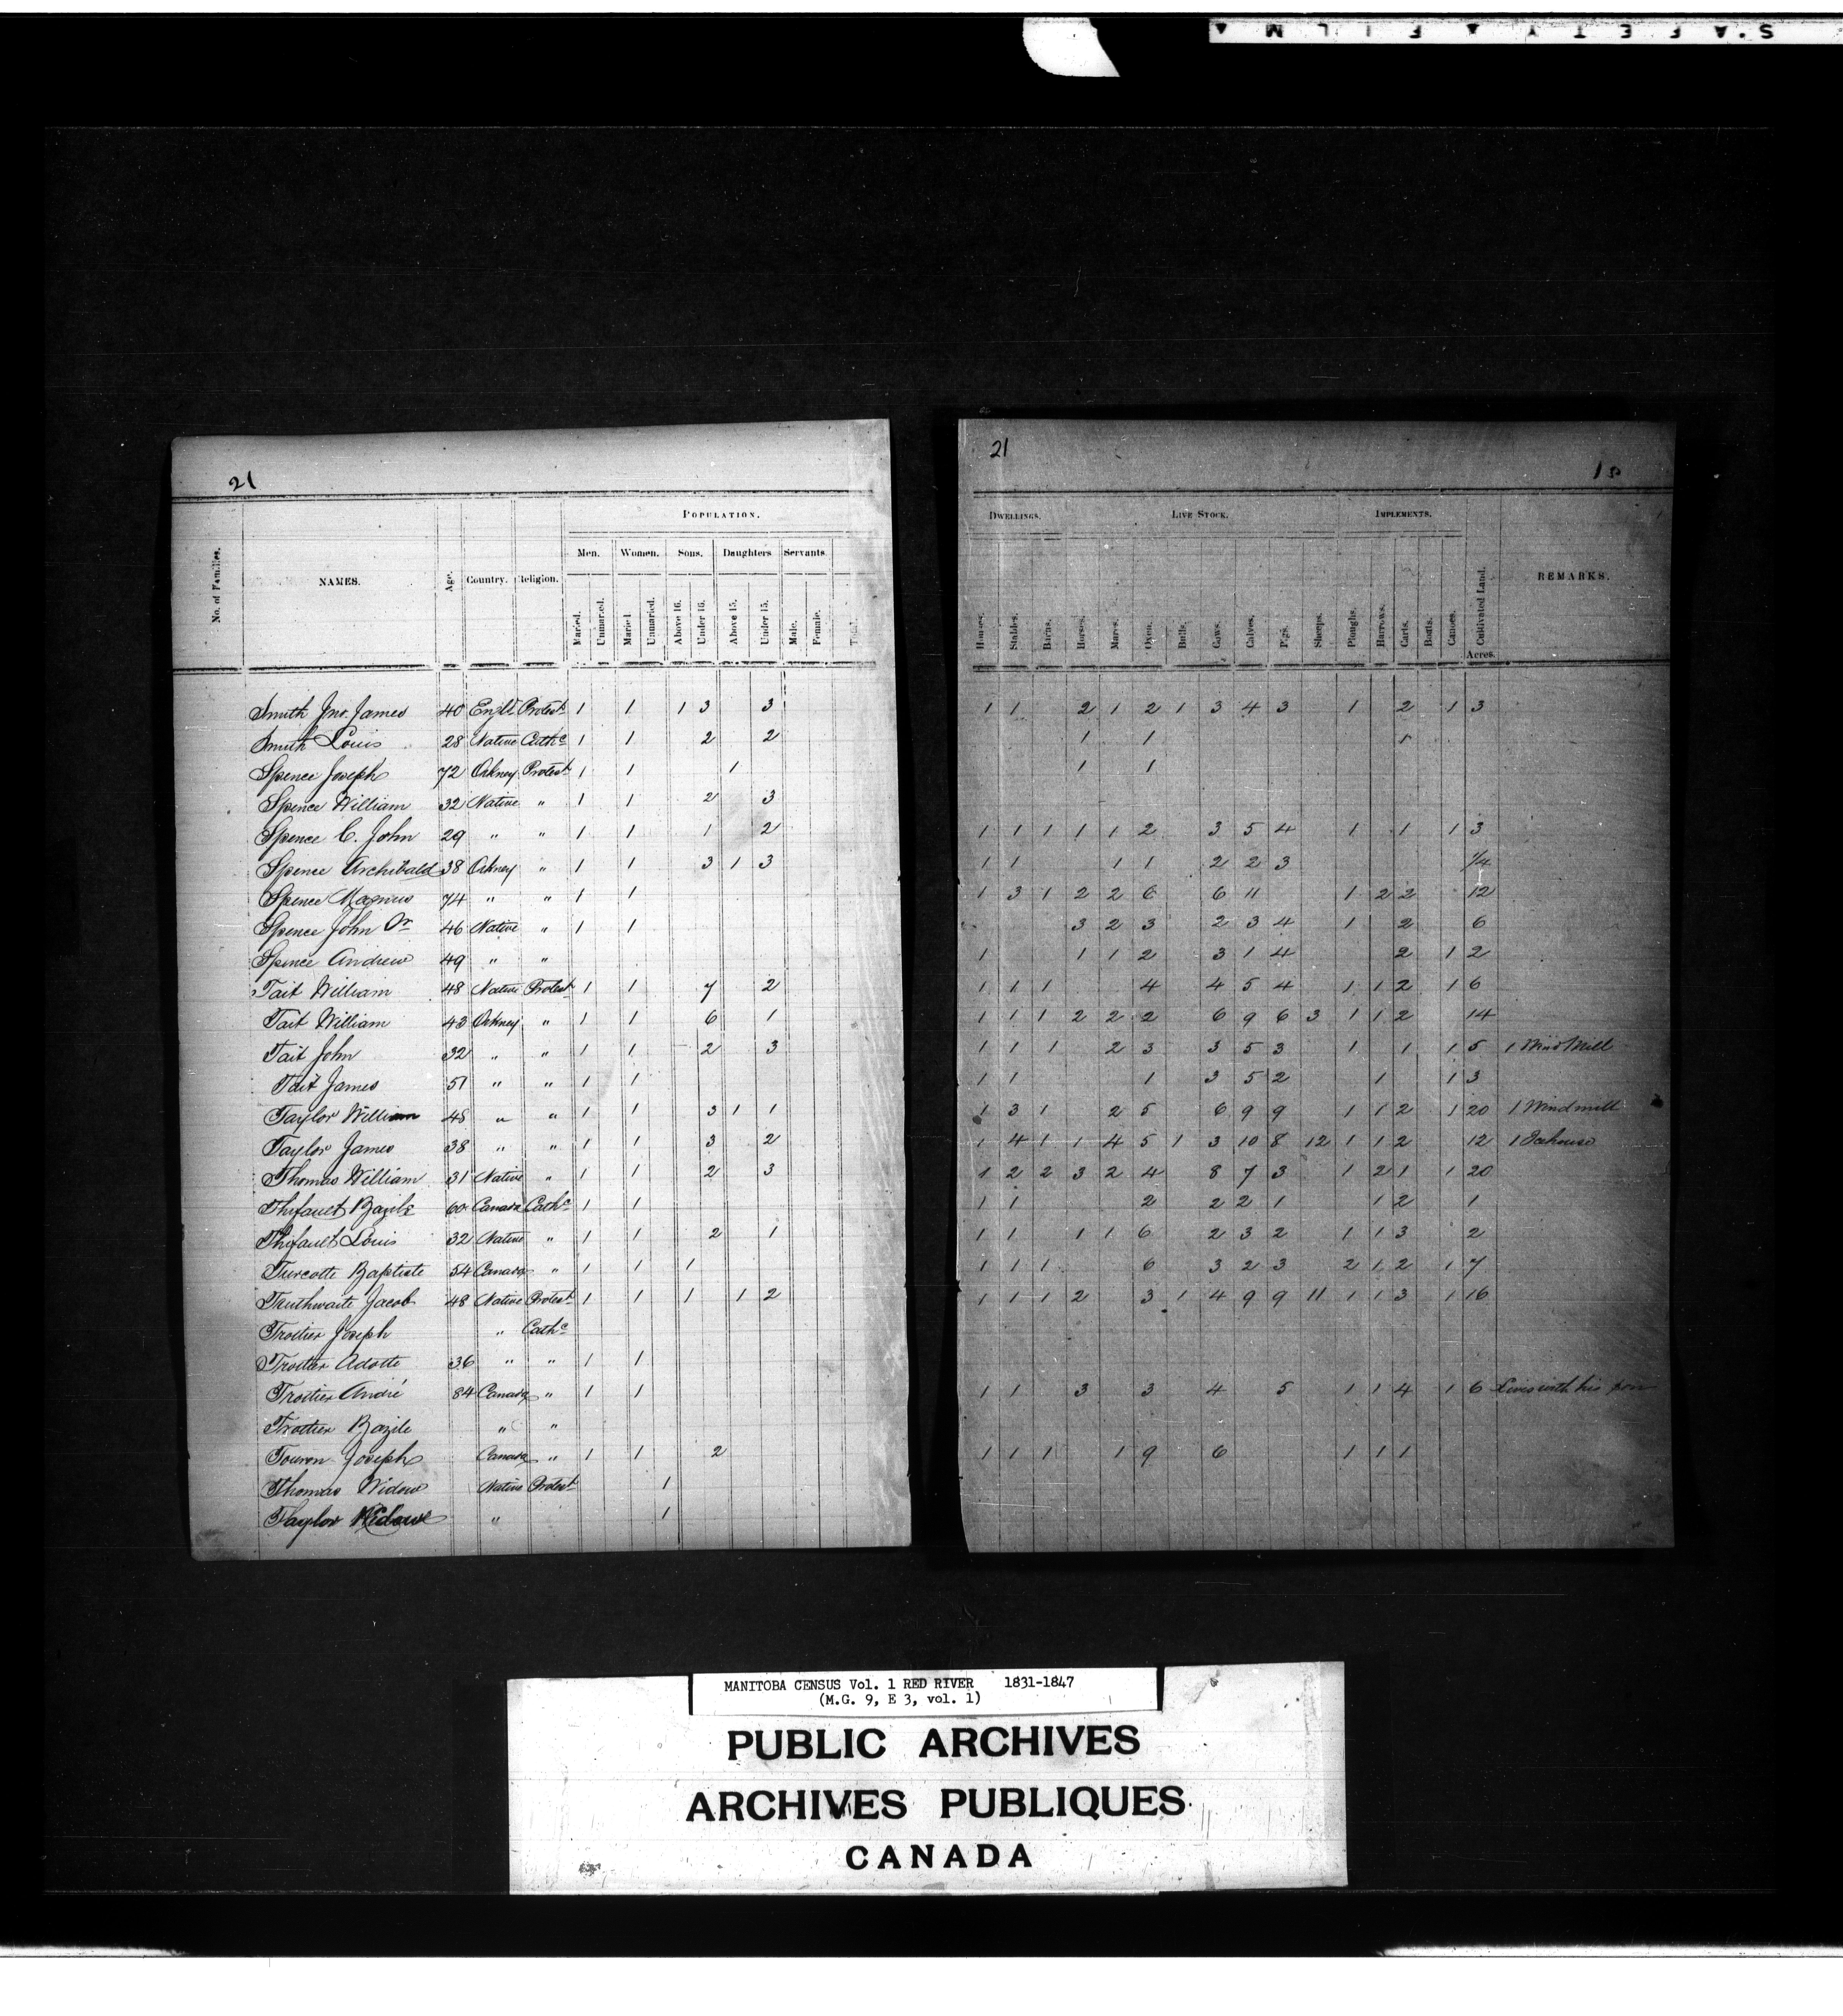 SAFETY FILM
21
No. of Families.
NAMES.
Age.
Country.
Religion.
POPULATION.
Men. Women. Sons. Daughters Servants.
Maried. Unmaried. Maried. Unmaried. Above 16. Under 16. Above 15. Under 15. Male. Female. Total.
Smith Jno. James 40 Protest. 1 1 1 3 3
Smith Louis 28 Native Cathc 1 1 2 2
Spence Joseph 72 Orkney Protest. 1 1 1
Spence William 32 Native " 1 1 2 3
Spence C. John 29 " " 1 1 1 2
Spence Archibald 38 Orkney " 1 1 3 1 3
Spence Magnus 74 " " 1 1
Spence John 46 Native " 1 1
Spence Andrew 49 " "
Tait William 48 Native Protest 1 1 7 2
Tait William 43 Orkney " 1 1 6 1
Tait John 32 " " 1 1 2 3
Tait James 51 " " 1 1
Taylor William 48 " " 1 1 3 1 1
Taylor James 38 " " 1 1 3 2
Thomas William 31 Native " 1 1 2 3
Thifault Bazile 60 Canada Cathc 1 1
Thifault Louis 32 Native " 1 1 2 1
Turcotte Baptiste 54 Canada " 1 1 1
Truthwaite Jacob 48 Native Protest. 1 1 1 1 2
Trottier Joseph " Cathc
Trottier Adotte 36 " " 1 1
Trottier André 84 Canada " 1 1
Trottier Bazile " "
Touron Joseph Canada " 1 1 2
Thomas Widow Native Protest 1
Taylor Widow " 1
21
DWELLINGS. LIVE STOCK. IMPLEMENTS.
Houses. Stables. Barns. Horses. Mares. Oxen. Bulls. Cows. Calves. Pigs. Sheeps. Ploughs. Harrows. Carts. Boats. Canoes. Cultivated Land. Acres.
REMARKS.
1 1 2 1 2 1 3 4 3 1 2 1 3
1 1 1
1 1
1 1 1 1 1 2 3 5 4 1 1 1 3
1 1 1 1 2 2 3 1/4
1 3 1 2 2 6 6 11 1 2 2 12
3 2 3 2 3 4 1 2 6
1 1 1 2 3 1 4 2 1 2
1 1 1 4 4 5 4 1 1 2 1 6
1 1 1 2 2 2 6 9 6 3 1 1 2 14
1 1 1 2 3 3 5 3 1 1 1 5 1 Wind Mill
1 1 1 3 5 2 1 1 3
1 3 1 2 5 6 9 9 1 1 2 1 20 1 Windmill
1 4 1 1 4 5 1 3 10 8 12 1 1 2 12 1 Icehouse
1 2 2 3 2 4 8 7 3 1 2 1 1 20
1 1 2 2 2 1 1 2 1
1 1 1 1 6 2 3 2 1 1 3 2
1 1 1 6 3 2 3 2 1 2 1 7
1 1 1 2 3 1 4 9 9 11 1 1 3 1 16
1 1 3 3 4 5 1 1 4 1 6 Lives with his son
1 1 1 1 9 6 1 1 1
MANITOBA CENSUS Vol. 1 RED RIVER 1831-1847
(M.G. 9, E 3, vol. 1)
PUBLIC ARCHIVES
ARCHIVES PUBLIQUES
CANADA